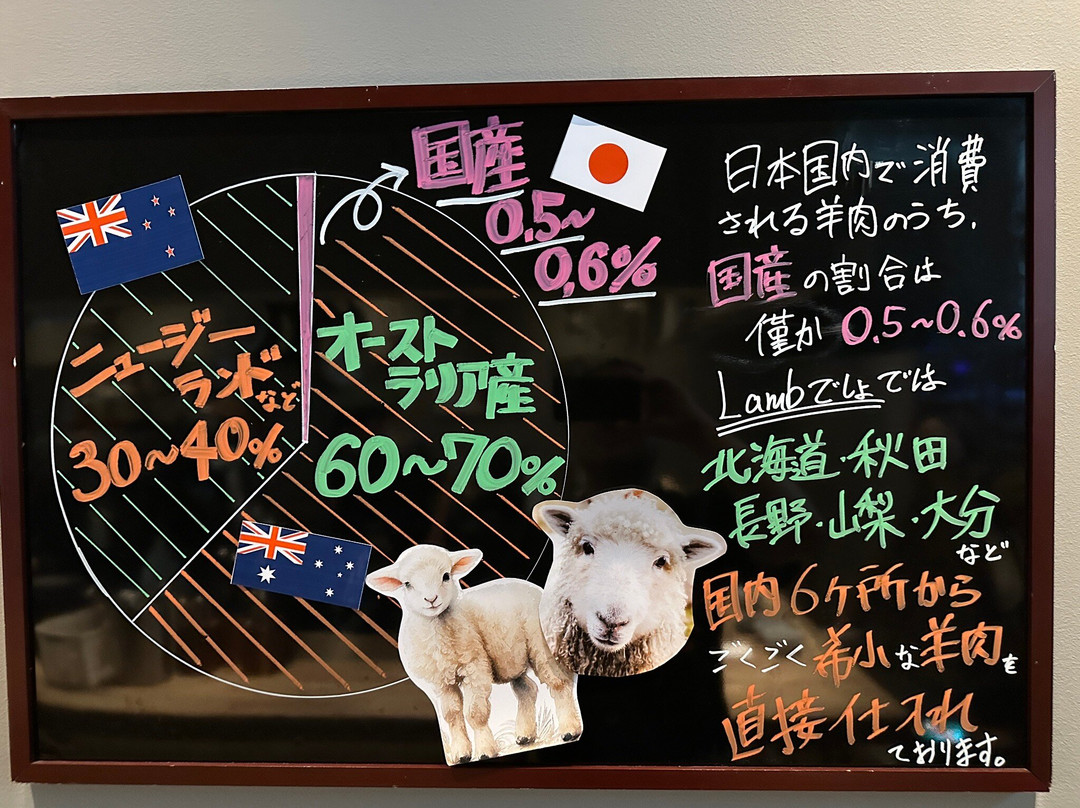 国産
0.5~
0.6%
ニュージー
ランドなど
30~40%
オースト
ラリア産
60~70%
日本国内で消費
される羊肉のうち、
国産の割合は
僅か0.5~0.6%
Lambでしょでは
北海道・秋田
長野・山梨・大分
など
国内6ヶ所から
ごくごく希小な羊肉を
直接仕入れ
ております。